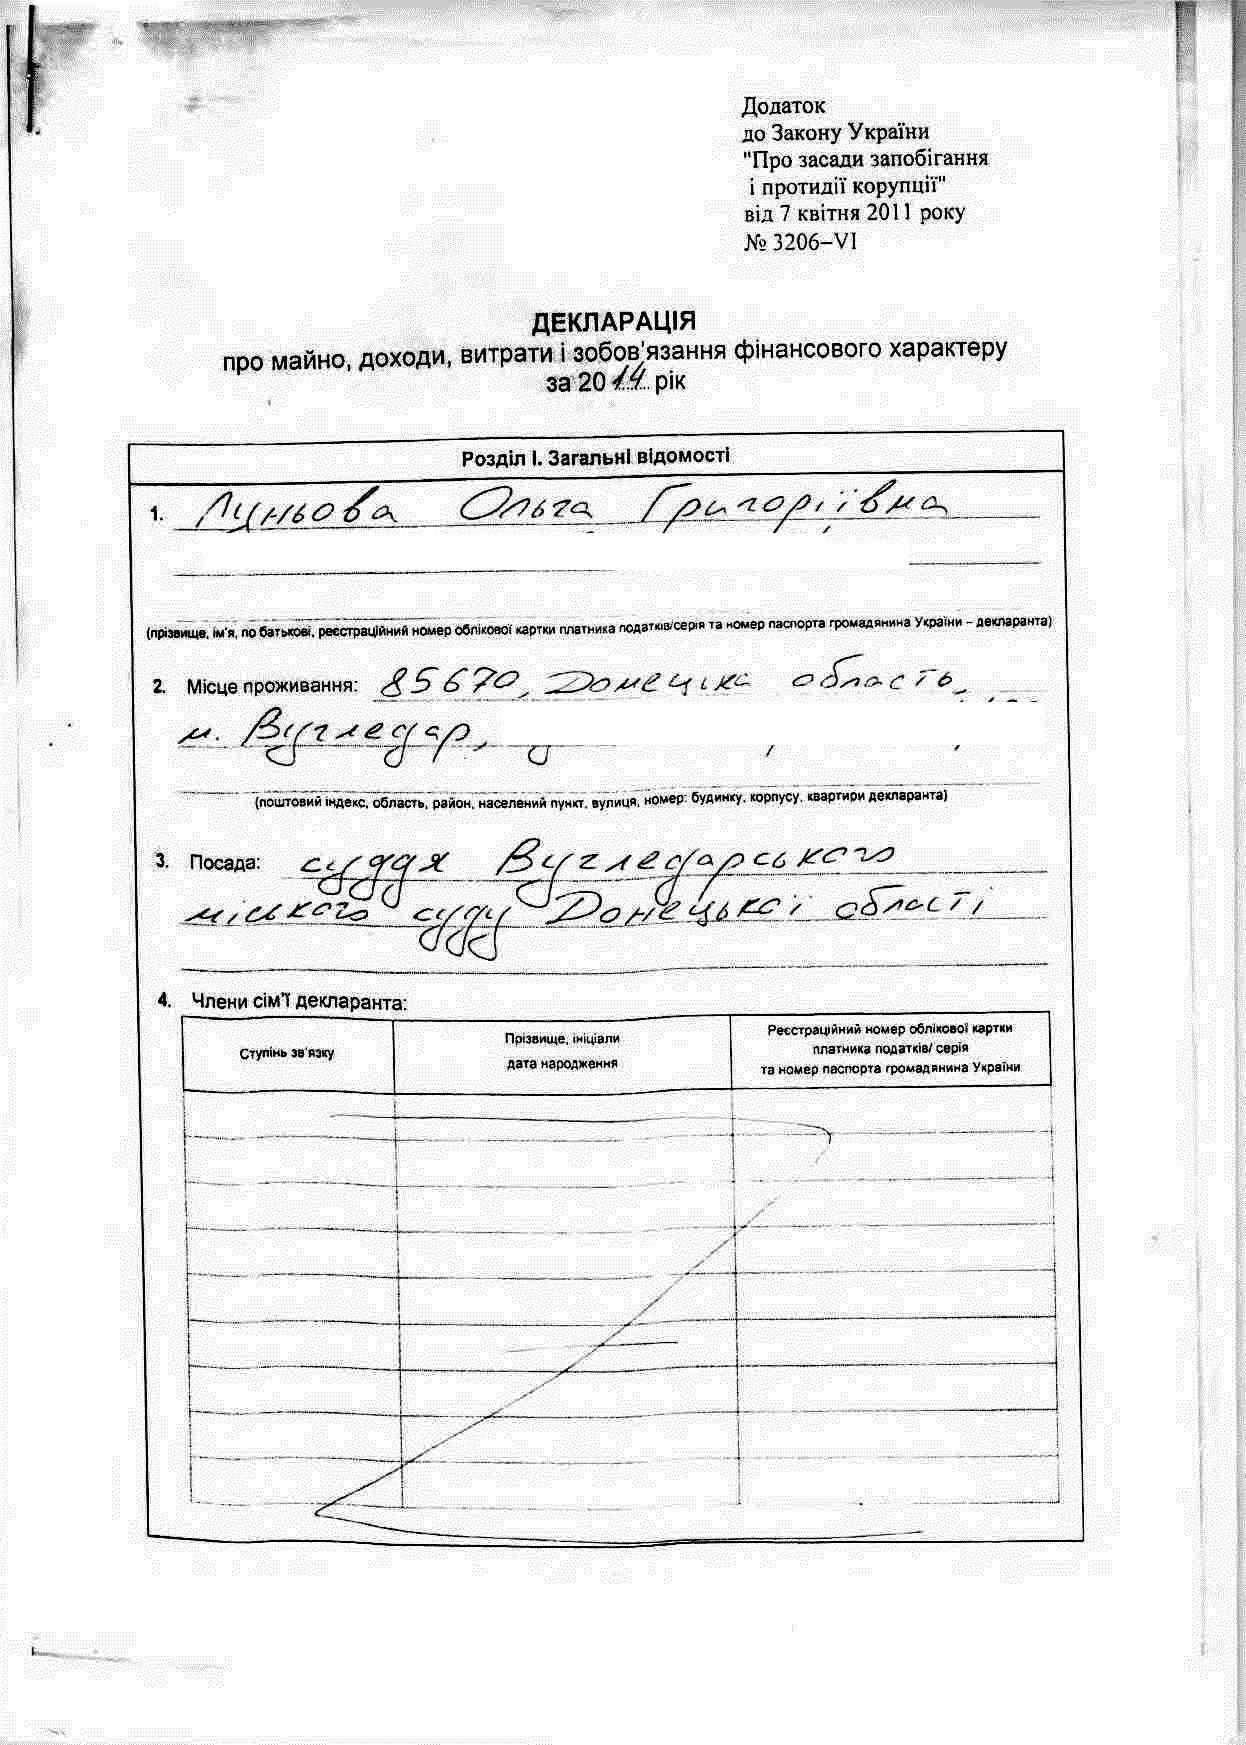 Додаток
до Закону України
"Про засади запобігання
і протидії корупції"
від 7 квітня 2011 року
№ 3206–VI
ДЕКЛАРАЦІЯ
про майно, доходи, витрати і зобов'язання фінансового характеру
за 2014 рік
Розділ І. Загальні відомості
1. Луньова Ольга Григоріївна
(прізвище, ім'я, по батькові, реєстраційний номер облікової картки платника податків/серія та номер паспорта громадянина України – декларанта)
2. Місце проживання: 85670, Донецька область,
м. Вугледар,
(поштовий індекс, область, район, населений пункт, вулиця, номер: будинку, корпусу, квартири декларанта)
3. Посада: суддя Вугледарського
міського суду Донецької області
4. Члени сім'ї декларанта:
Ступінь зв'язку
Прізвище, ініціали
дата народження
Реєстраційний номер облікової картки
платника податків/ серія
та номер паспорта громадянина України